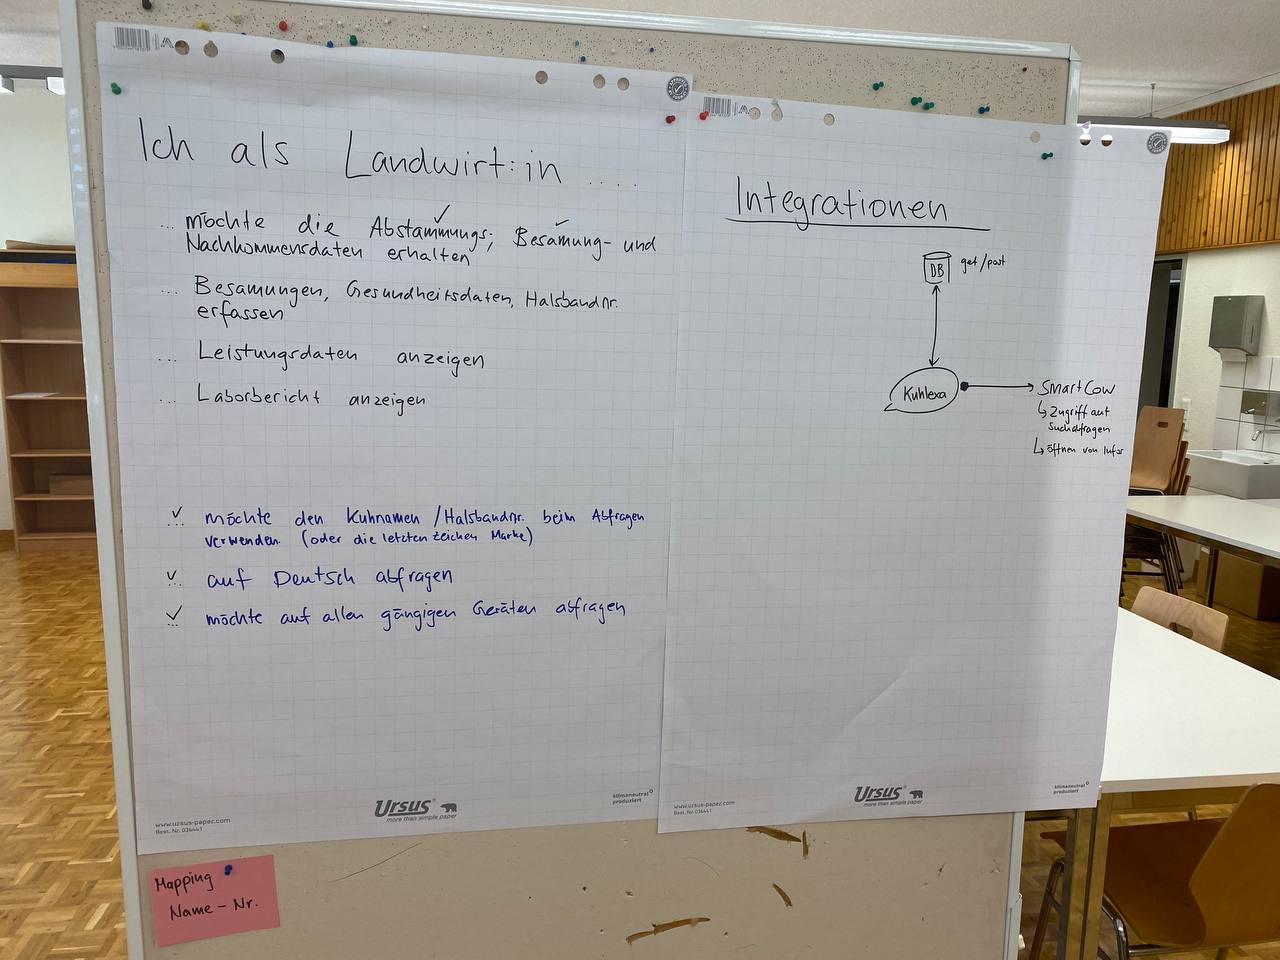 Ich als Landwirt:in ....
... möchte die Abstammungs-, Besamung- und
Nachkommensdaten erhalten
... Besamungen, Gesundheitsdaten, Halsbandnr.
erfassen
... Leistungsdaten anzeigen
... Laborbericht anzeigen
✓ ... möchte den Kuhnamen / Halsbandnr. beim Abfragen
verwenden. (oder die letzten Zeichen Marke)
✓ ... auf Deutsch abfragen
✓ ... möchte auf allen gängigen Geräten abfragen
Ursus
more than simple paper
www.ursus-paper.com
Best. Nr. 036441
klimaneutral
produziert
Mapping
Name - Nr.
Integrationen
DB get/post
Kuhlexa
SmartCow
↳ Zugriff auf
↳ öffnen von Infos
Ursus
more than simple paper
www.ursus-paper.com
Best. Nr. 036441
klimaneutral
produziert